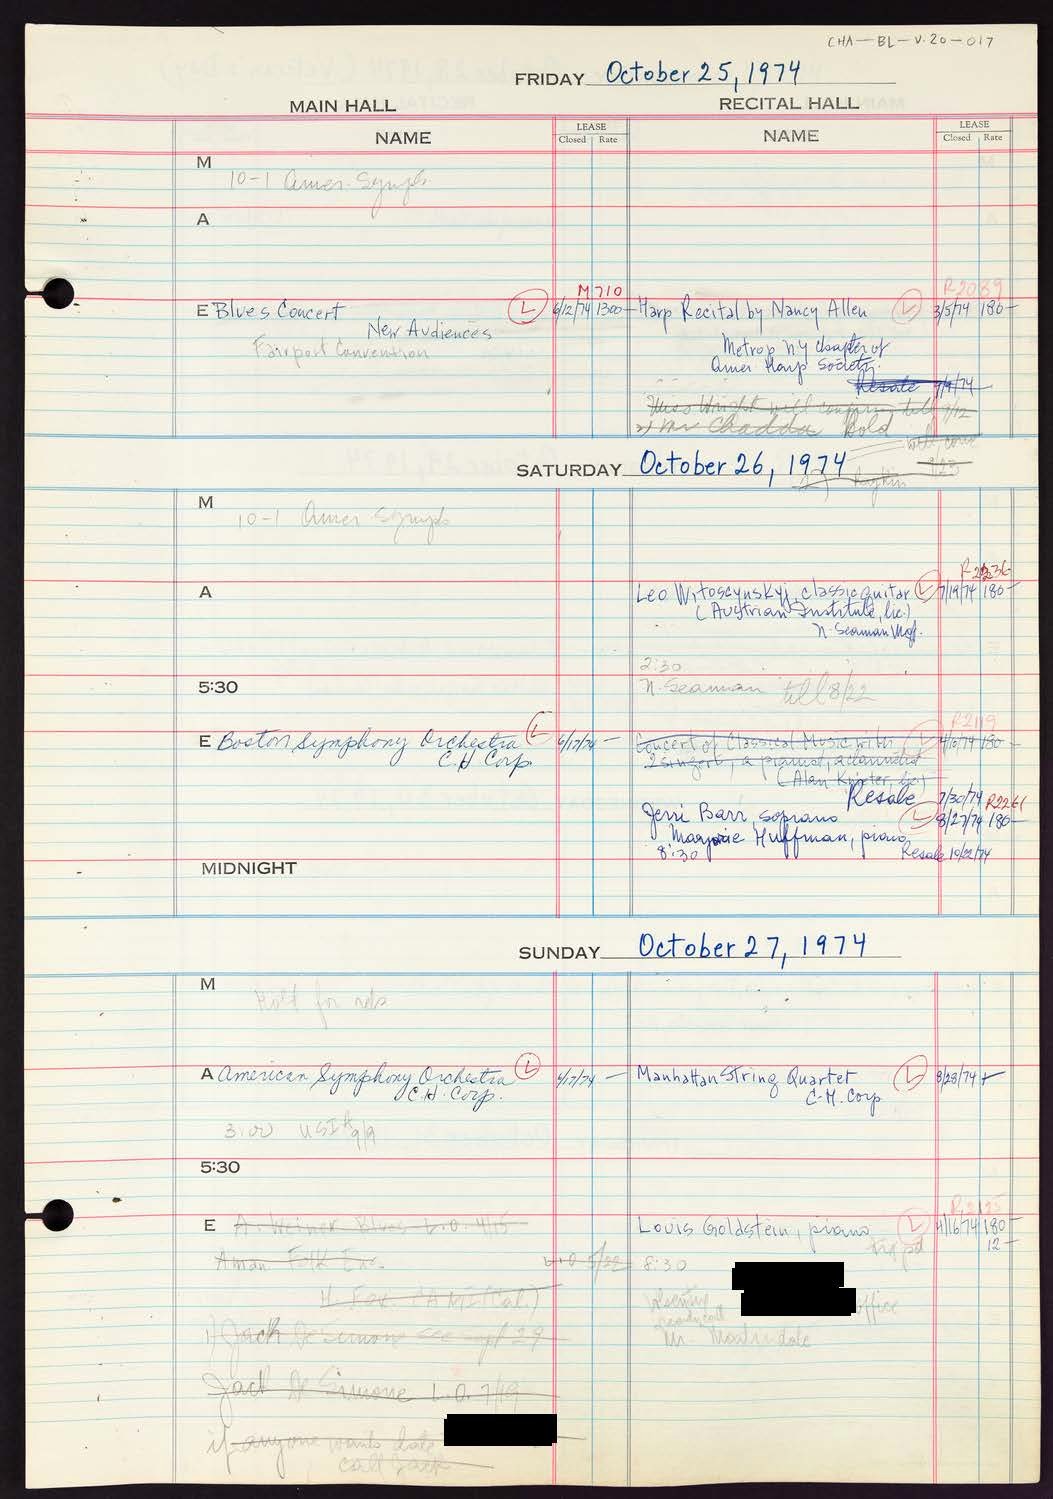 CHA-BL-V.20-017
FRIDAY October 25, 1974
MAIN HALL RECITAL HALL
NAME LEASE Closed Rate NAME LEASE Closed Rate
M
10-1 Amer. Symph
A
M710 R2089
E Blues Concert L 6/12/74 1300- Harp Recital by Nancy Allen L 3/5/74 180-
New Audiences
Fairport Convention
Metrop NY Chapter of
Amer Harp Society.
Resale 9/9/74
Miss Wright will confirm till 9/12
Mr Chadda Hold
SATURDAY October 26, 1974
M
10-1 Amer Symph
R2236
A Leo Witoscynskyj, classic guitar L 7/19/74 180-
(Austrian Institute, lic.)
N. Seaman Mgt.
2:30
5:30 N. Seaman till 8/22
R2119
E Boston Symphony Orchestra L 6/17/74 - Concert of Classical Music with L 4/10/74 180-
C.H Corp. 2 singers, a pianist, a clarinetist
(Alan Kineter, lic.)
Resale 7/30/74 R2261
Jerri Barr, soprano L 8/27/74 180-
Marjorie Huffman, piano
8:30 Resale 10/22/74
MIDNIGHT
SUNDAY October 27, 1974
M
Hold for rels
A American Symphony Orchestra L 6/17/74 - Manhattan String Quartet L 8/28/74
C.H. Corp. C.H. Corp
3:00 USIA 9/9
5:30
R2125
E A. Weiner Blues L.O. 4/15 Louis Goldstein, piano L 4/16/74 180-
12-
Aman Folk Ens. L.O 5/22 8:30
H. Fox (Cal.)
office
1) Jack DeSimone 29
Mr. Martindale
Jack De Simone L.O. 7/19
if anyone wants date
call back